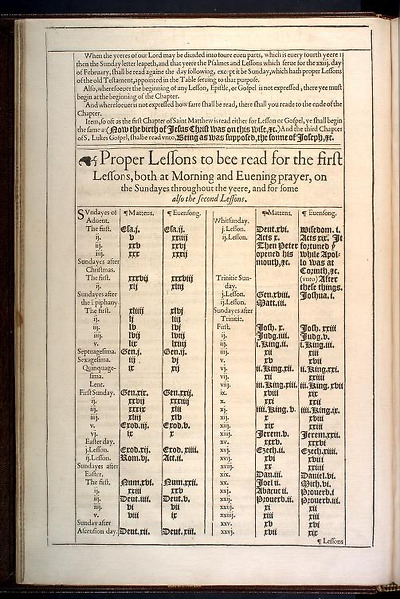 When the yeeres of our Lord may be diuided into foure euen parts, which is euery fourth yeere:
then the Sunday letter leapeth, and that yeere the Psalmes and Lessons which serue for the xxiij. day
of February, shall be read againe the day following, except it be Sunday, which hath proper Lessons
of the old Testament, appointed in the Table seruing to that purpose.
Also, wheresoeuer the beginning of any Lesson, Epistle, or Gospel is not expressed, there yee must
begin at the beginning of the Chapter.
And wheresoeuer is not expressed how farre shall be read, there shall you reade to the ende of the
Chapter.
Item, so oft as the first Chapter of Saint Matthew is read either for Lesson or Gospel, ye shall begin
the same at (Now the birth of Jesus Christ was on this wise, &c.) And the third Chapter
of S. Lukes Gospel, shalbe read vnto, Being as was supposed, the sonne of Joseph, &c.
Proper Lessons to bee read for the first
Lessons, both at Morning and Euening prayer, on
the Sundayes throughout the yeere, and for some
also the second Lessons.
SVndayes of ¶ Mattens. ¶ Euensong.
Aduent.
The first. Esa.j. Esa.ij.
ij. v xxiiij
iij. xxv xxvj
iiij. xxx xxxij
Sundayes after
Christmas.
The first. xxxvij xxxviij
ij. xlj xliij
Sundayes after
the Epiphany
The first. xliiij xlvj
ij. lj liij
iij. lv lvj
iiij. lvij lviij
v. lix lxiiij
Septuagesima. Gen.j. Gen.ij.
Sexagesima. iij vj
Quinquage-
sima. ix xij
Lent.
First Sunday. Gen.xix. Gen.xxij.
ij. xxvij xxxiiij
iij. xxxix xlij
iiij. xliij xlv
v. Exod.iij Exod.v.
vj. ix x
Easter day.
j.Lesson. Exod.xij. Exod. xiiij.
ij.Lesson. Rom.vj. Act.ij.
Sundayes after
Easter.
The first. Num.xvi. Num.xxij.
ij. xxiij xxv
iij. Deut.iiij. Deut.v.
iiij. vj vij
v. viij ix
Sunday after
Ascension day. Deut.xij. Deut.xiij.
¶ Mattens. ¶ Euensong.
Whitsunday.
j.Lesson. Deut.xvi. Wisedom.i.
ij.Lesson. Acts x. Acts xix. It
Then Peter fortuned
opened his while Apol-
mouth,&c. lo was at
Corinth,&c.
(vnto) After
these things.
Trinitie Sun-
day.
j.Lesson. Gen.xviii. Joshua.i.
ij.Lesson. Matt.iii.
Sundayes after
Trinitie.
First. Josh. x. Josh. xxiii
ij. Judg.iiii. Judg.v.
iij. i.King.ii. i.King.iii.
iiij. xii xiii
v. xv xvii
vj. ii.King.xii. ii.King.xxi.
vij. xxii xxiiii
viij. iii.King.xiii iii.King. xvii
ix. xviii xix
x. xxi xxii
xj. iiii.King.v. iiii.King.ix
xij. x xviii
xiij. xix xxiii
xiiij. Jerem.v. Jerem.xxii.
xv. xxxv. xxxvi.
xvj. Ezech.ii. Ezech.xiiii.
xvij. xvi xviii
xviij. xx xxiiii
xix. Dan.iii. Daniel.vi.
xx. Joel ii. Mich.vi.
xxj. Abacuc ii. Prouerb.i
xxij. Prouerb.ii. Prouerb.iii.
xxiij. xi xii
xxiiij. xiii xiiii
xxv. xv xvi
xxvj. xvii xix
¶ Lessons